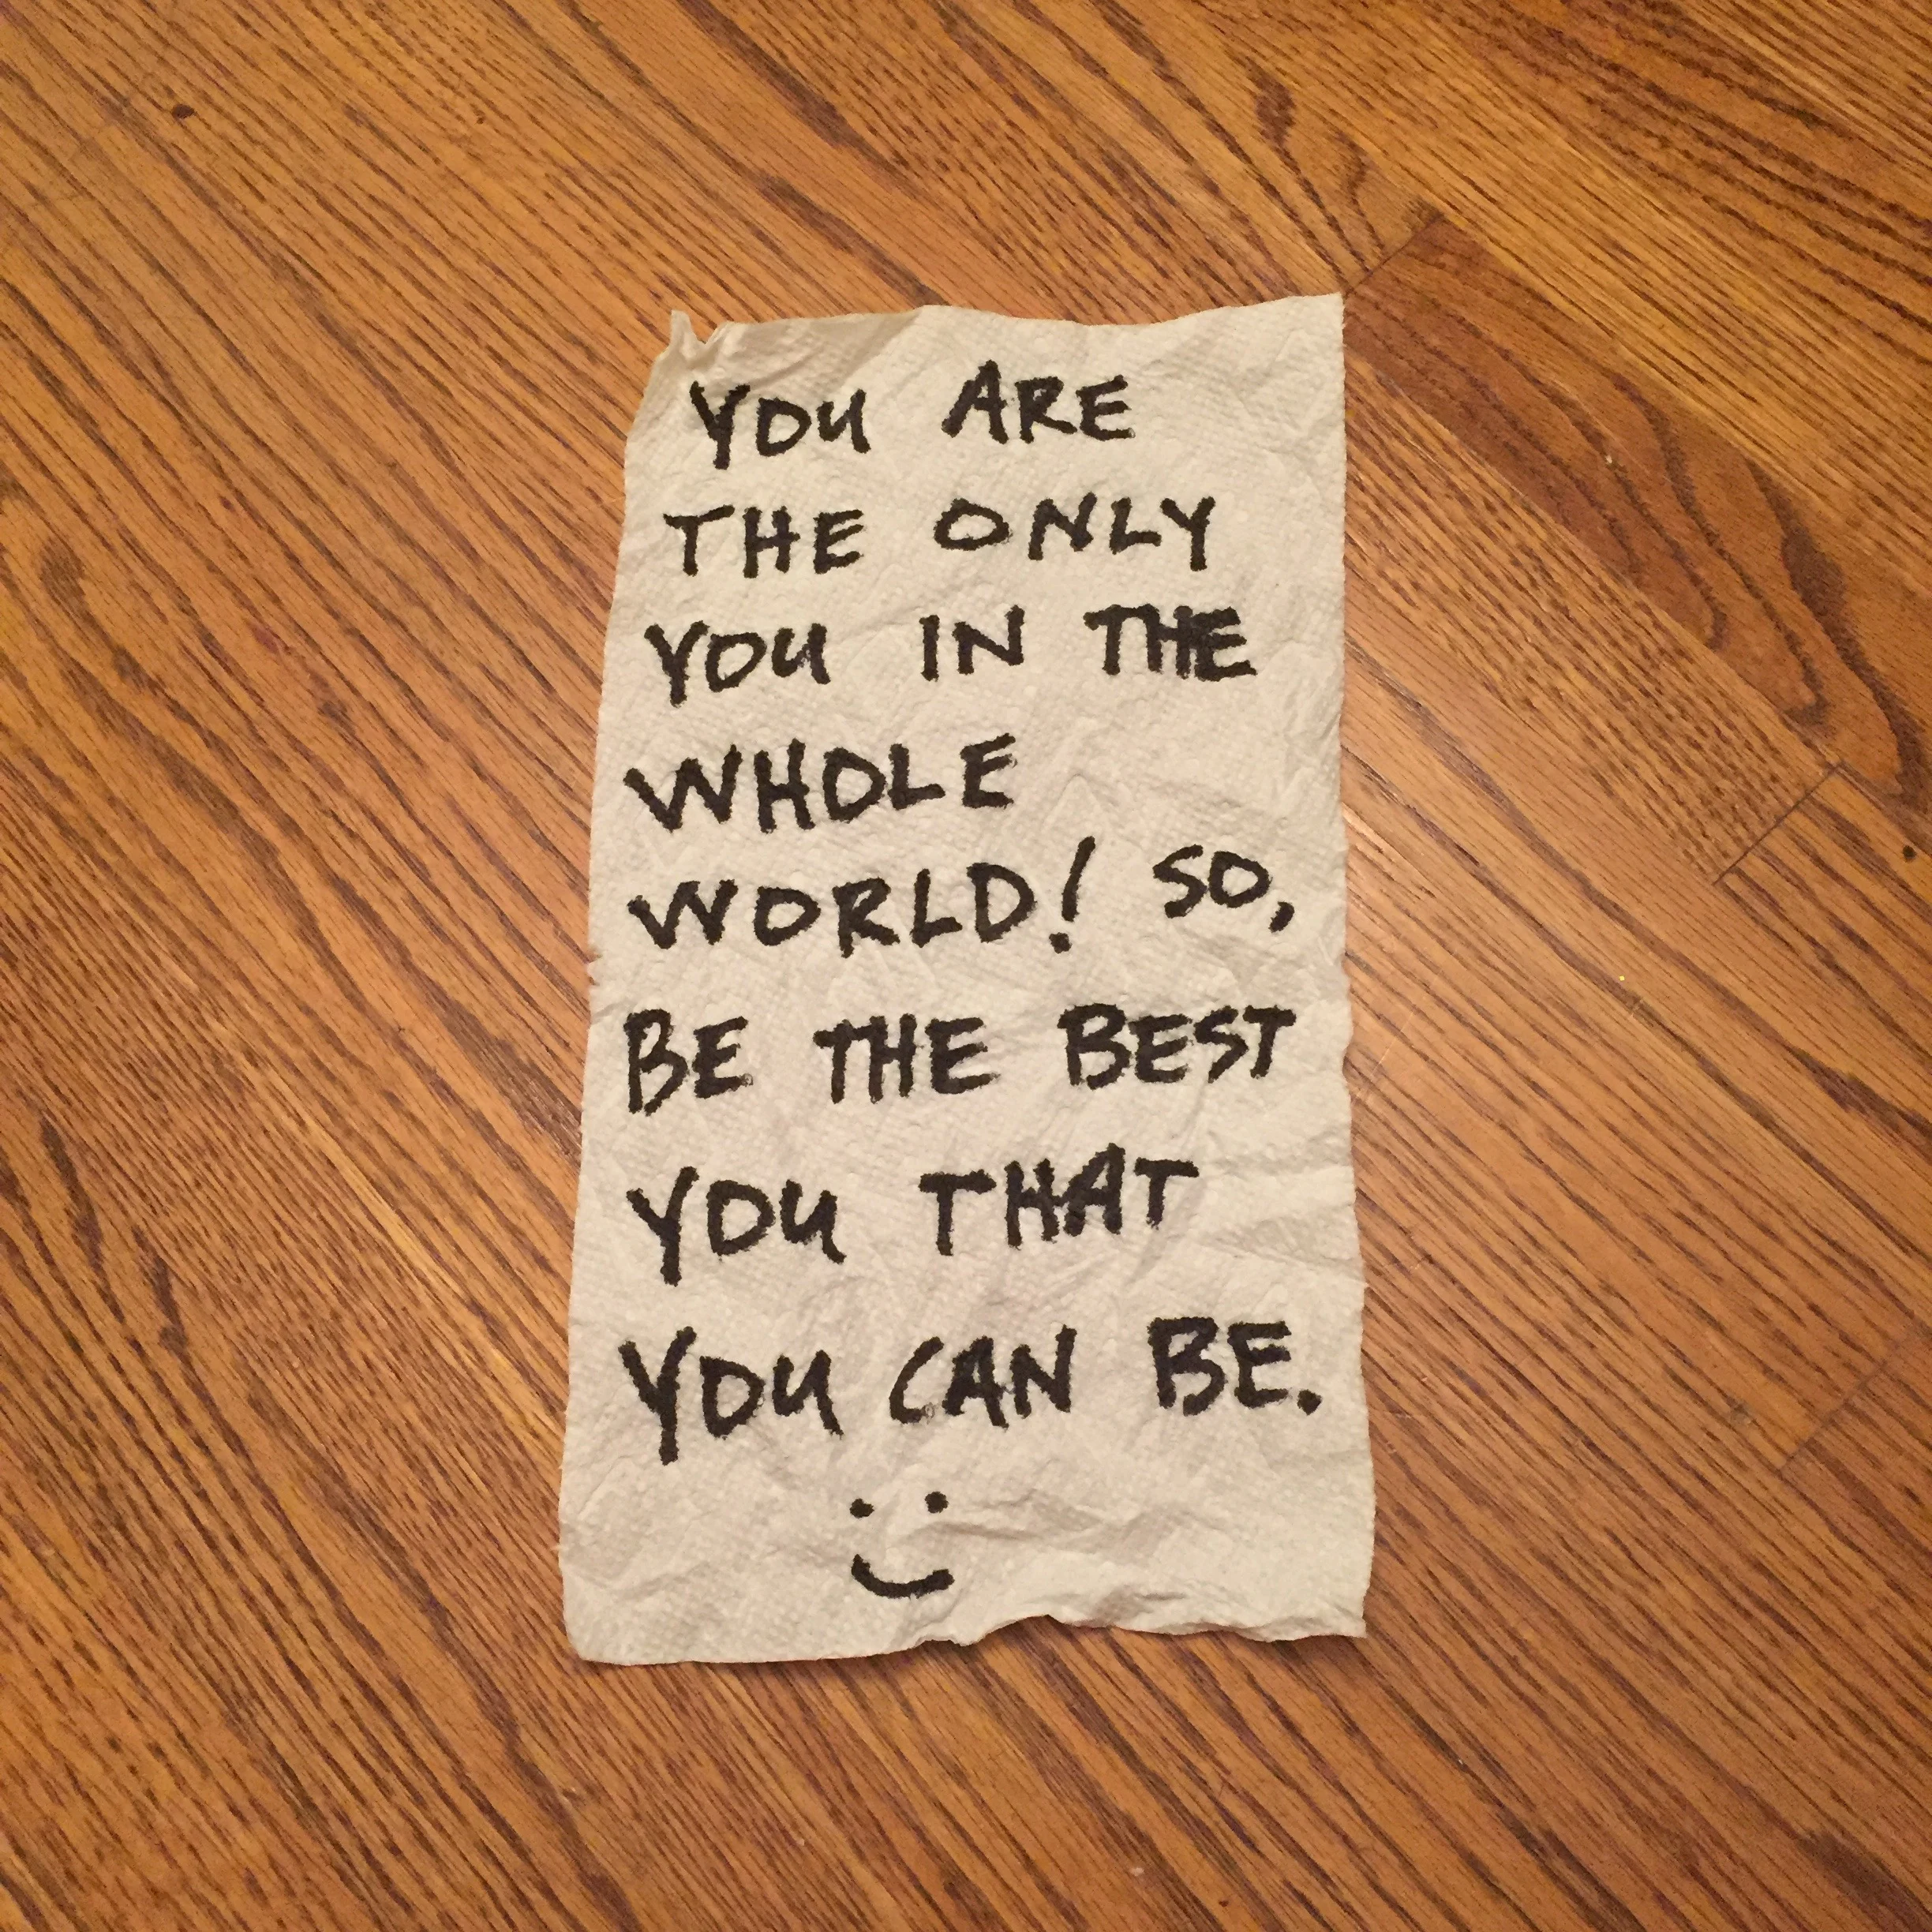 YOU ARE
THE ONLY
YOU IN THE
WHOLE
WORLD! SO,
BE THE BEST
YOU THAT
YOU CAN BE.